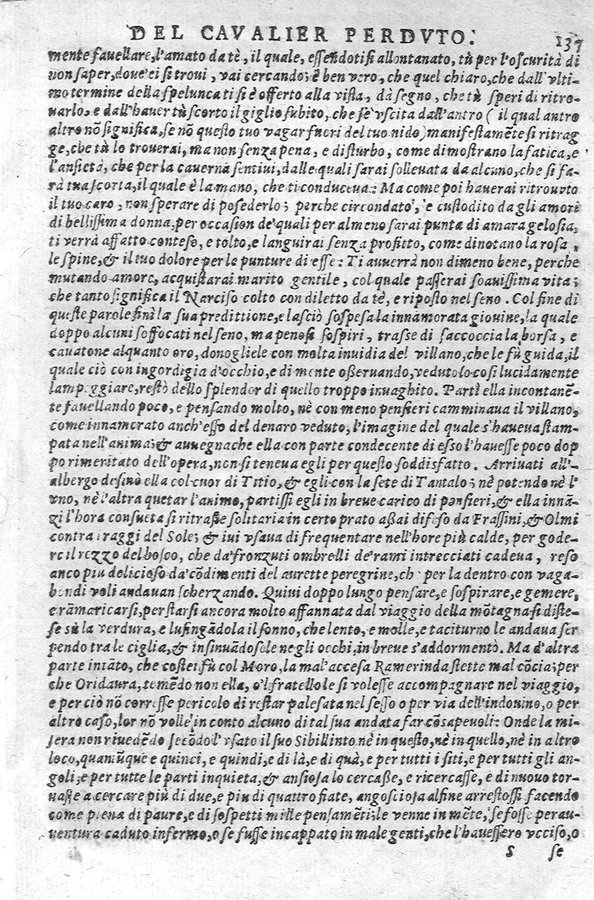 DEL CAVALIER PERDVTO. 137
mente fauellare, l'amato da tè, il quale, essendotisi allontanato, tù per l'oscurità di
non saper, doue ei si troui, vai cercando; è ben vero, che quel chiaro, che dall'vlti-
mo termine della spelunca ti si è offerto alla vista, dà segno, che tù speri di ritro-
uarlo, e dall'hauer tù scorto il giglio subito, che sè vscita dall'antro ( il qual antro
altro nõ significa, se nõ questo tuo vagar fueri del tuo nido) manifestamẽte si ritrag
ge, che tù lo trouerai, ma non senza pena, e disturbo, come dimostrano la fatica, e
l'ansietà, che per la cauerna sentiui, dalle quali sarai solleuata da alcuno, che si fa-
rà tua scorta, il quale è la mano, che ti conduceua: Ma come poi hauerai ritrouato
il tuo caro, non sperare di posederlo; perche circondato, e custodito da gli amori
di bellissima donna, per occasion de' quali per almeno sarai punta di amara gelosia,
ti verrà affatto conteso, e tolto, e languirai senza profitto, come dinotano la rosa,
le spine, & il tuo dolore per le punture di esse: Ti auuerrà non dimeno bene, perche
mutando amore, acquistarai marito gentile, col quale passerai soauissima vita;
che tanto significa il Narciso colto con diletto da tè, e riposto nel seno. Col fine di
queste parole finì la sua predittione, e lasciò sospesa la innamorata giouine, la quale
doppo alcuni soffocati nel seno, ma penosi sospiri, trasse di saccoccia la borsa, e
cauatone alquanto oro, donogliele con molta inuidia del villano, che le fù guida, il
quale ciò con ingordigia d'occhio, e di mente osseruando, vedutolo così lucidamente
lampeggiare, restò dello splendor di quello troppo inuaghito. Partì ella incontanẽ-
te fauellando poco, e pensando molto, nè con meno pensieri camminaua il villano,
come innamorato anch'esso del denaro veduto, l'imagine del quale s'haueua stam-
pata nell'anima; & auuegnache ella con parte condecente di esso l'hauesse poco dop
po rimeritato dell'opera, non si teneua egli per questo soddisfatto. Arriuati all'-
albergo desinò ella col cuor di Titio, & egli con la sete di Tantalo; nè potendo nè l'
vno, nè l'altra quetar l'animo, partissi egli in breue carico di pensieri, & ella innã-
zi l'hora consueta si ritrasse solitaria in certo prato assai difeso da Frassini, & Olmi
contra i raggi del Sole; & iui vsaua di frequentare nell'hore più calde, per gode-
re il rezzo del bosco, che da' fronzuti ombrelli de' rami intrecciati cadeua, reso
anco più delicioso da' cõdimenti del aurette peregrine, ch per la dentro con vaga-
bondi voli andauan scherzando. Quiui doppo lungo pensare, e sospirare, e gemere,
e rãmaricarsi, per starsi ancora molto affannata dal viaggio della mõtagna si diste-
se sù la verdura, e lusingãdola il sonno, che lento, e molle, e taciturno le andaua ser
pendo tra le ciglia, & insinuãdosele negli occhi, in breue s'addormentò. Ma d'altra
parte intãto, che costei fù col Moro, la mal'accesa Ramerinda stette mal cõcia; per
che Oridaura, temẽdo non ella, o'l fratello le si volesse accompagnare nel viaggio,
e per ciò nõ corresse pericolo di restar palesata nel sesso o per via dell'indouino, o per
altro caso, lor nõ volle in conto alcuno di tal sua andata far cõsapeuoli: Onde la mi-
sera non riuedẽdo secõdo l'vsato il suo Sibillinto nè in questo, nè in quello, nè in altro
loco, quamũque e quinci, e quindi, e di là, e di quà, e per tutti i siti, e per tutti gli an-
goli, e per tutte le parti inquieta, & ansiosa lo cercasse, e ricercasse, e di nuouo tor-
nasse a cercare più di due, e più di quattro fiate, angosciosa alfine arrestossi facendo
come piena di paure, e di sospetti mille pensamẽti; le venne in mẽte, se fosse perau-
uentura caduto infermo, o se fusse incappato in male genti, che l'hauessero vcciso, o
S se